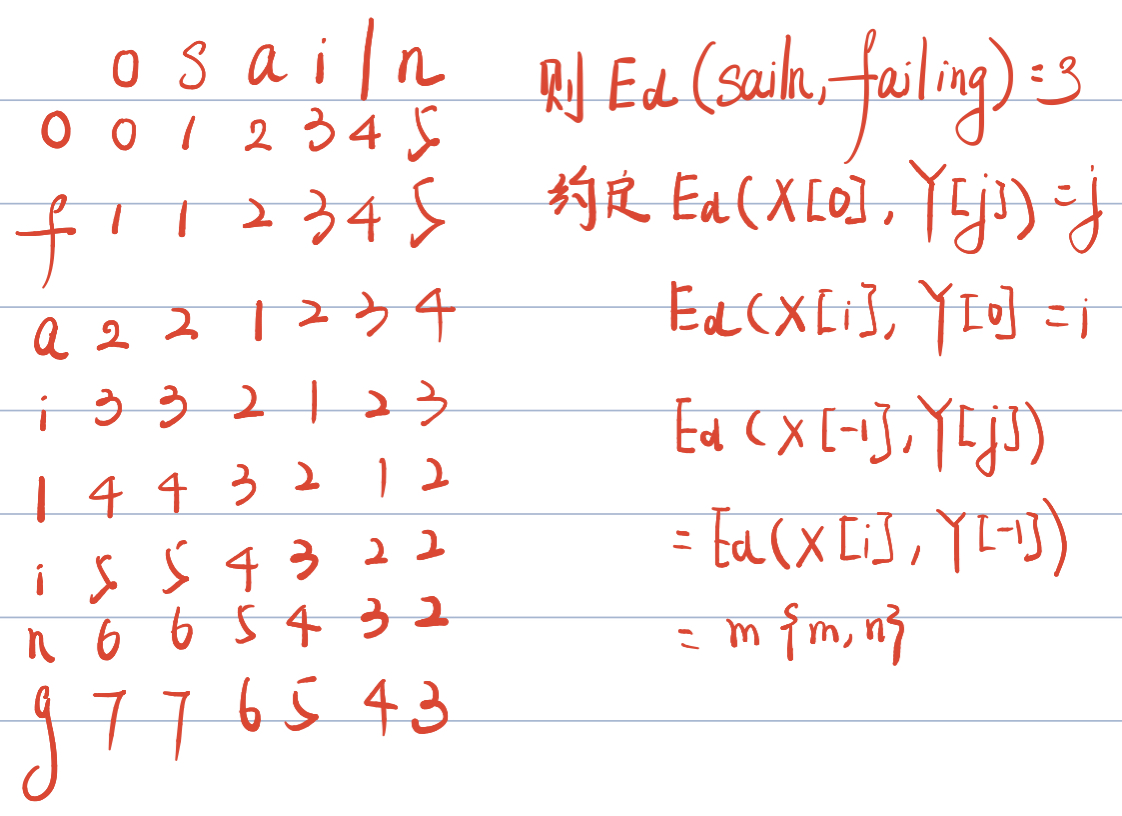 0 s a i l n
0 0 1 2 3 4 5
f 1 1 2 3 4 5
a 2 2 1 2 3 4
i 3 3 2 1 2 3
l 4 4 3 2 1 2
i 5 5 4 3 2 2
n 6 6 5 4 3 2
g 7 7 6 5 4 3
则 Ed(sailn, failing)=3
约定 Ed(X[0], Y[j])=j
Ed(X[i], Y[0] =i
Ed(X[-1], Y[j])
= Ed(X[i], Y[-1])
= m{m, n}